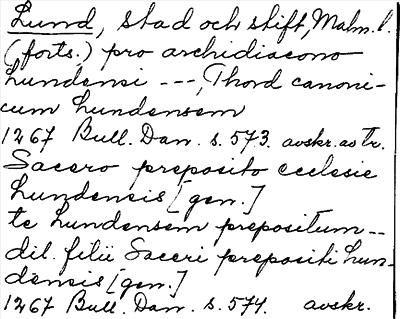 Lund, stad och stift, Malm. l.
(forts.) pro archidiacono
lundensi ---, Thord canoni-
cum lundensem
1267 Bull. Dan. s. 573. avskr. av Tr.
Sacero preposito ecclesie
lundensis [gen.]
te lundensem prepositum --
dil. filii Saceri prepositi lun-
densis [gen.]
1267 Bull. Dan. s. 574. avskr.